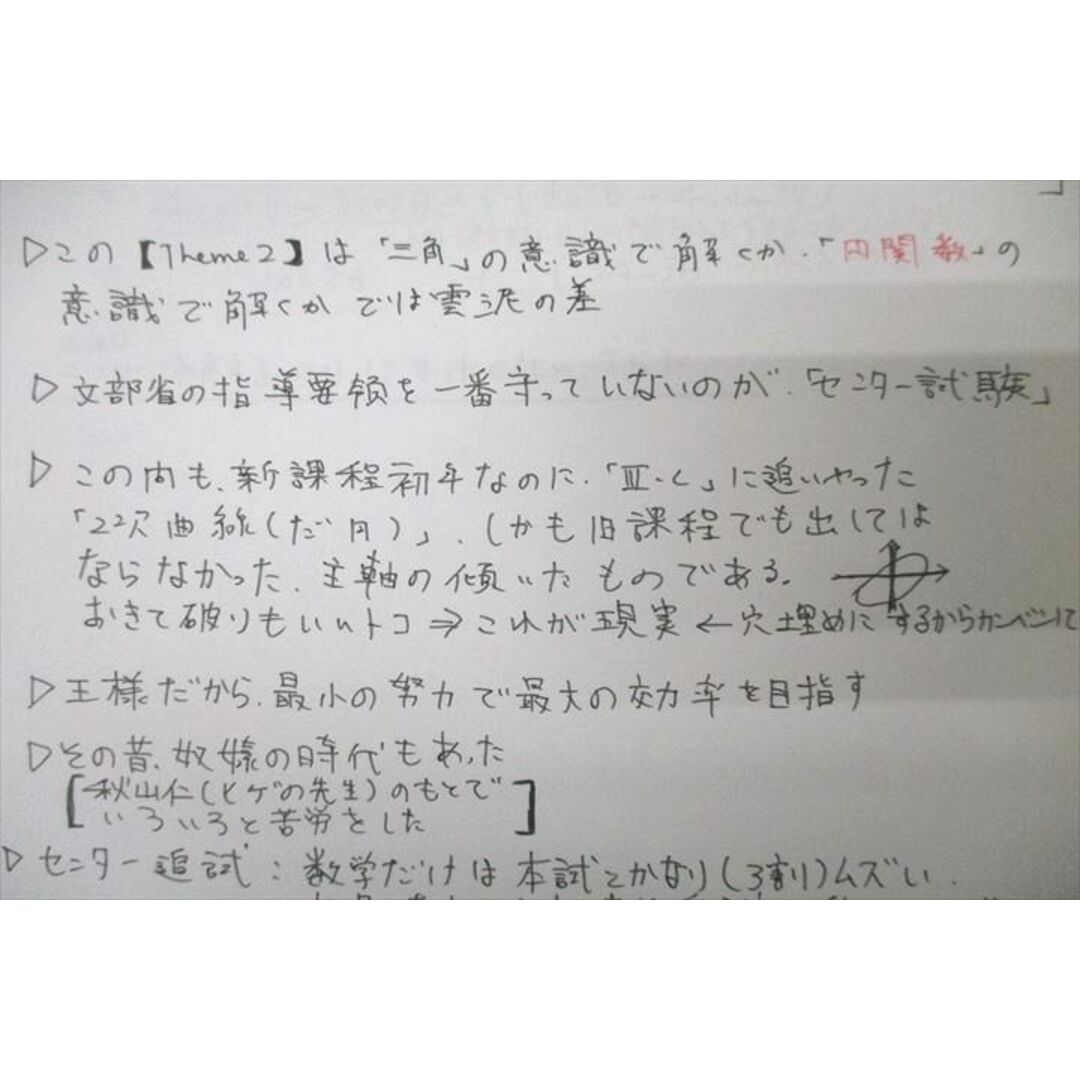 ▷この【Theme 2】は「三角」の意識で解くか、「円関数」の
意識で解くかでは雲泥の差
▷文部省の指導要領を一番守っていないのが、「センター試験」
▷この内も、新課程初年なのに、「Ⅲ・C」に追いやった
「2次曲線(だ円)」、しかも旧課程でも出しては
ならなかった、主軸の傾いたものである。
おきて破りもいいトコ⇒これが現実←穴埋めにするからカンベンして
▷王様だから、最小の努力で最大の効率を目指す
▷その昔、奴隷の時代もあった
[秋山仁(ヒゲの先生)のもとで
いろいろと苦労をした]
▷センター追試：数学だけは本試とかなり(3割)ムズい.